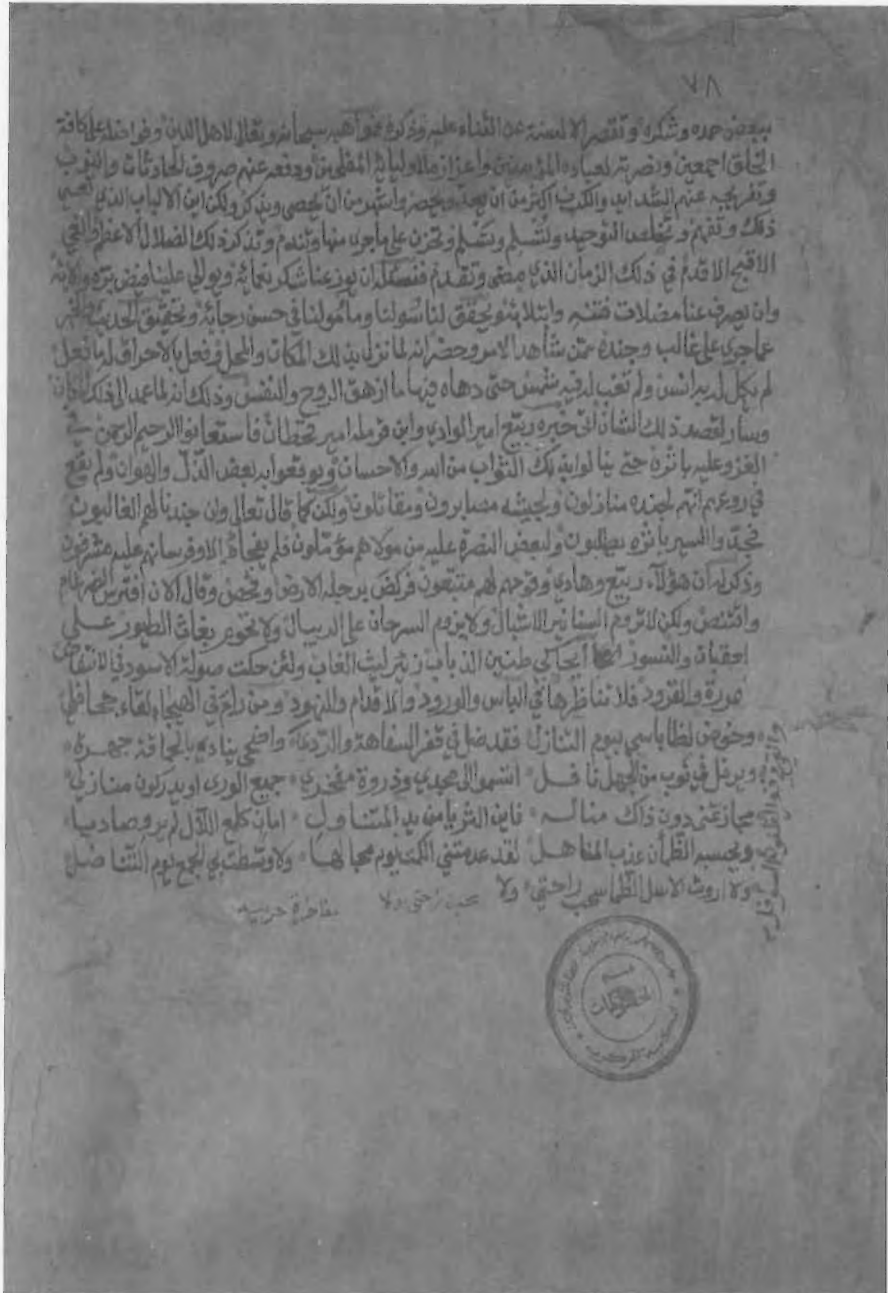 ٧٨
ببعض حمده وشكره وتقصر الالسنة عن الثناء عليه وذكره فمواهبه سبحانه وتعالى لاهل الدين وفواضله على كافة
الخلق اجمعين ونصرته لعباده المؤمنين واعزازه لاوليائه المفلحين ودفعه عنهم صروف الحادثات والنوب
وتفريجه عنهم الشدايد والكرب اكثر من ان يعد ويحصر واشهر من ان يحصى ويذكر ولكن اين الالباب الذي تعي
ذلك وتفهم وتخلص التوحيد وتستسلم وتسلم وتحزن على ماجرى منها وتندم وتذكر ذلك الضلال الاعظم والغي
الاقبح الاقدم في ذلك الزمان الذي مضى وتقدم فنسئله ان يوزعنا شكر نعمائه ويوالي علينا فيض بره والائه
وان يصرف عنا مضلات فتنه وابتلائه ويحقق لنا سولنا ومأمولنا في حسن رجائه وتحقيق الحديث والخبر
عما جرى على غالب وجنده عمن شاهد الامر وحضر انه لما نزل بذلك المكان والمحل وفعل بالاحراق له ما فعل
لم يكمل لديه انس ولم تغب له فيه شمس حتى دهاه فيها ما ازهق الروح والنفس وذلك انه لما عمد الى ذلك المكان
وسار لقصد ذلك الشان اتى خبره ربيع امير الوادي وابن قرمله امير قحطان فاستعانوا الرحيم الرحمن في
الغزو عليه باثره حتى ينالوا بذلك الثواب من الله والاحسان ويوقعوا به بعض الذل والهوان ولم يقع
في روعهم انهم لجنده منازلون ولجيشه مصابرون ومقاتلون ولكن كما قال تعالى وان جندنا لهم الغالبون
فجدوا المسير باثره يطلبون ولبعض النصرة عليه من مولاهم مؤملون فلم يفجأه الا وفرسانهم عليه مشرفون
وذكر له ان هؤلاء ربيع وهادي وقومهم لهم متبعون فركض برجله الارض وفحص وقال الان افترس الضرغام
واقتنص ولكن لا تروم السنانير الاشبال ولا يزوم السرحان على الريبال ولا تحوم بغاث الطيور على
العقبان والنسور ايحاكي طنين الذباب زئير ليث الغاب ولئن حكت صولة الاسود في الانتفاض
صورة والقرود فلا تناظرها في الباس والورود والاقدام والنهود ومن رام في الهيجا لقاء جحافلي
وخوض لظا باسي بيوم التنازل فقد ضل في قفر السفاهة والردى واضحى ينادي بالحماقة جهرة
ويرفل في ثوب من الجهل نافل اتسموا الى مجدي وذروة مفخري جميع الورى او يدركون منازلي
مجاز تمنى دون ذاك مناله فاين الثريا من يد المتناول امان كلمع الآل لم يرو صاديا
ويحسبه الظمأن عذب المناهل لقد عدمتني الكمت يوم مجالها ولا وسطت بي الجمع يوم التناضل
ولا اروت الاسل الظما سحب راحتي ولا
سحب راحتي ولا
مفاخرة حربية